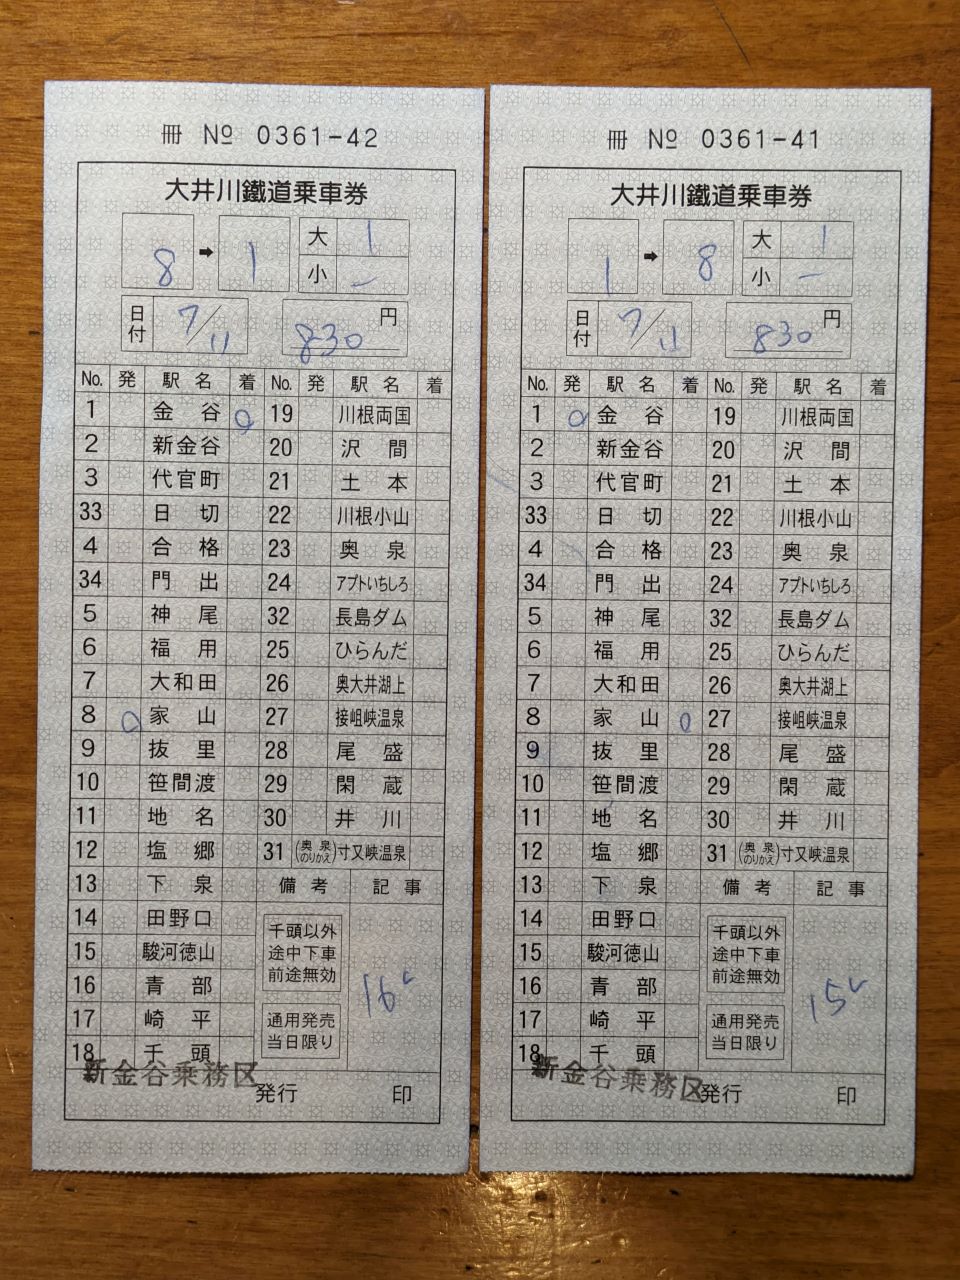 冊 No 0361-42
大井川鐵道乗車券
8 ➡ 1 大 1
小 —
日付 7/11 830円
No. 発 駅名 着 No. 発 駅名 着
1 金谷 ○ 19 川根両国
2 新金谷 20 沢間
3 代官町 21 土本
33 日切 22 川根小山
4 合格 23 奥泉
34 門出 24 アプトいちしろ
5 神尾 32 長島ダム
6 福用 25 ひらんだ
7 大和田 26 奥大井湖上
8 ○ 家山 27 接岨峡温泉
9 抜里 28 尾盛
10 笹間渡 29 閑蔵
11 地名 30 井川
12 塩郷 31 (奥泉のりかえ)寸又峡温泉
13 下泉 備考 記事
14 田野口 千頭以外
15 駿河徳山 途中下車
16 青部 前途無効
17 崎平 通用発売
18 千頭 当日限り
16レ
新金谷乗務区
発行 印
冊 No 0361-41
大井川鐵道乗車券
1 ➡ 8 大 1
小 —
日付 7/11 830円
No. 発 駅名 着 No. 発 駅名 着
1 ○ 金谷 19 川根両国
2 新金谷 20 沢間
3 代官町 21 土本
33 日切 22 川根小山
4 合格 23 奥泉
34 門出 24 アプトいちしろ
5 神尾 32 長島ダム
6 福用 25 ひらんだ
7 大和田 26 奥大井湖上
8 家山 ○ 27 接岨峡温泉
9 抜里 28 尾盛
10 笹間渡 29 閑蔵
11 地名 30 井川
12 塩郷 31 (奥泉のりかえ)寸又峡温泉
13 下泉 備考 記事
14 田野口 千頭以外
15 駿河徳山 途中下車
16 青部 前途無効
17 崎平 通用発売
18 千頭 当日限り
15レ
新金谷乗務区
発行 印